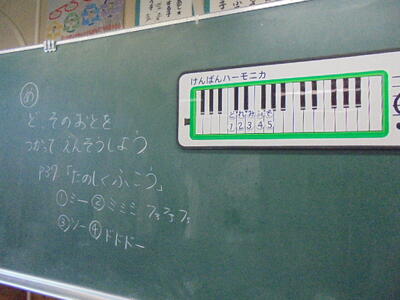 けんばんハーモニカ
どれみふぁそ
1 2 3 4 5
め
ど、そのおとを
つかって えんそうしよう
P37「たのしくふこう」
①ミー②ミミミ
③ソー④ドドドー